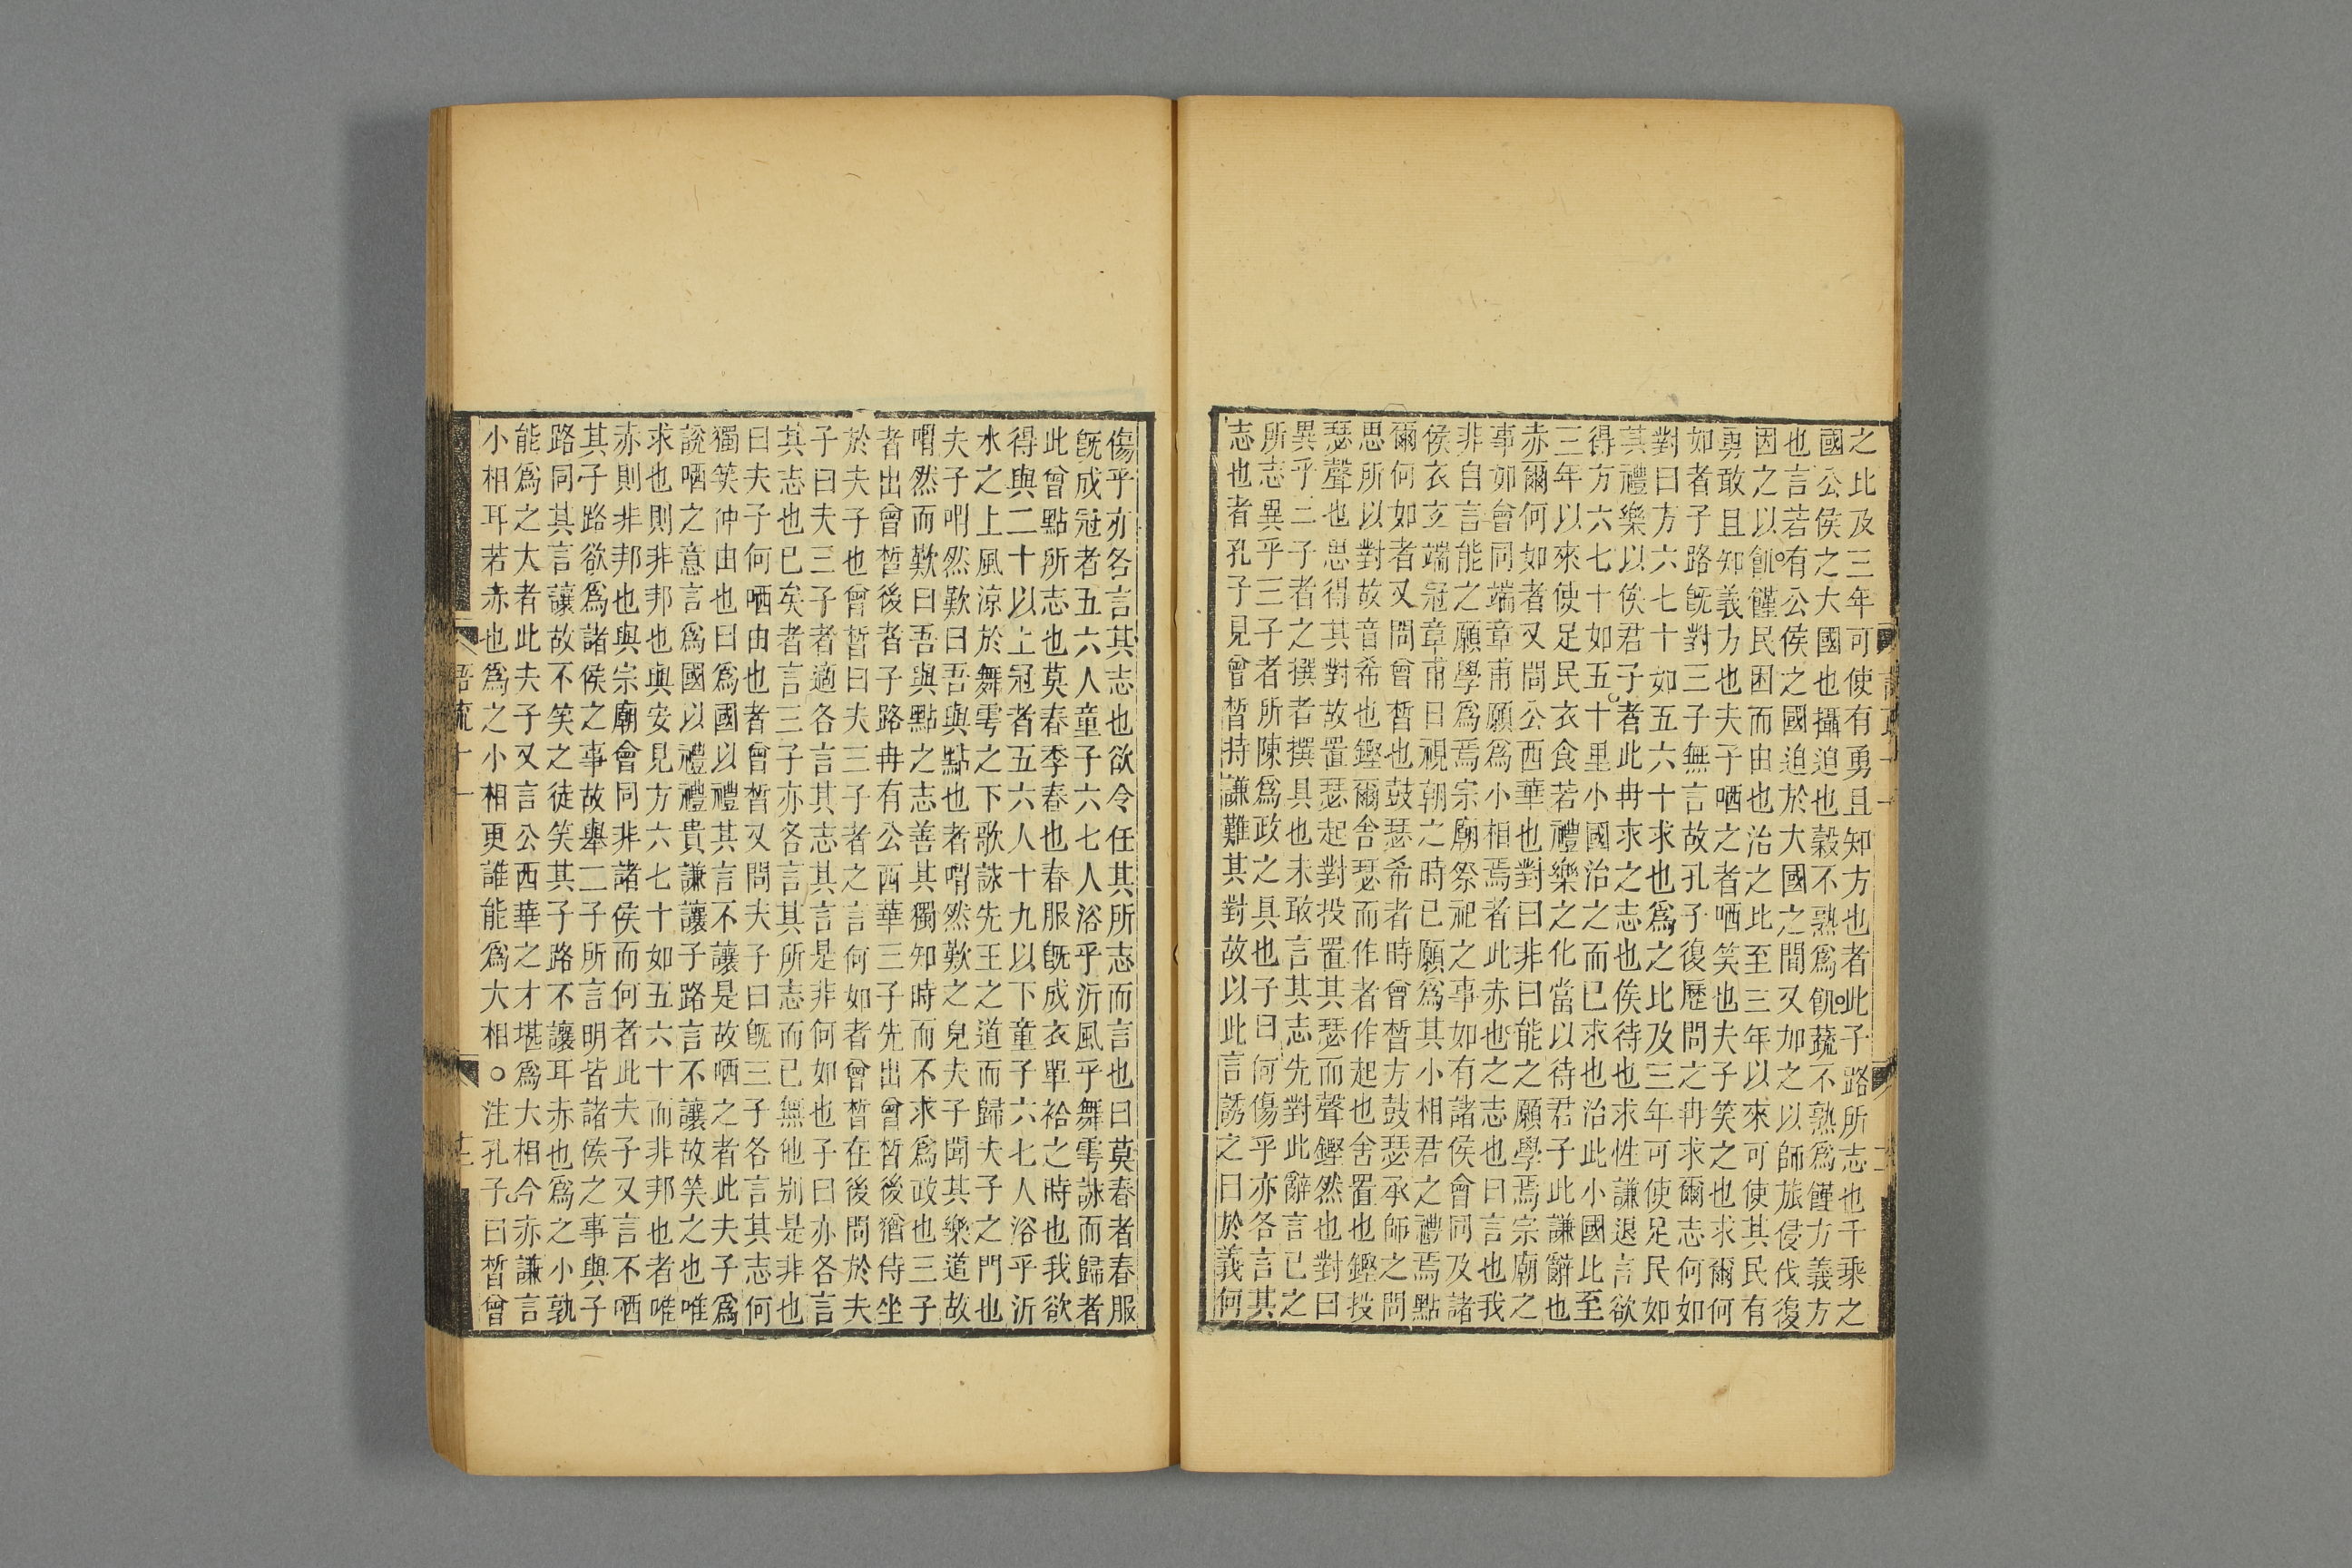 之比及三年可使有勇且知方也者此子路所志也千乘之
國公侯之大國也攝迫也穀不熟爲飢蔬不熟爲饉方義方
也言若有公侯之國迫於大國之間又加之以師旅侵伐復
因之以飢饉民困而由也治之比至三年以來可使其民有
勇敢且知義方也夫子哂之者哂笑也夫子笑之也求爾何
如者子路既對三子無言故孔子復歷問之冉求爾志何如
對曰方六七十如五六十求也爲之比及三年可使足民如
其禮樂以俟君子者此冉求之志也俟待也求性謙退言欲
得方六七十如五六十里小國治之而已求也治此小國比至
三年以來使足民衣食若禮樂之化當以待君子此謙辭也
赤爾何如者又問公西華也對曰非曰能之願學焉宗廟之
事如會同端章甫願爲小相焉者此赤也之志也曰言也我
非自言能之願學爲焉宗廟祭祀之事如有諸侯會同及諸
侯衣玄端冠章甫日視朝之時已願爲其小相君之禮焉點
爾何如者又問曾晳也鼓瑟希者時曾晳方鼓瑟承師之問
思所以對故音希也鏗爾舍瑟而作者作起也舍置也鏗投
瑟聲也思得其對故置瑟起對投置其瑟而聲鏗然也對曰
異乎三子者之撰者撰具也未敢言其志先對此辭言已之
所志異乎三子者所陳爲政之具也子曰何傷乎亦各言其
志也者孔子見曾晳持謙難其對故以此言誘之曰於義何
傷乎亦各言其志也欲令任其所志而言也曰莫春者春服
既成冠者五六人童子六七人浴乎沂風乎舞雩詠而歸者
此曾點所志也莫春季春也春服既成衣單袷之時也我欲
得與二十以上冠者五六人十九以下童子六七人浴乎沂
水之上風涼於舞雩之下歌詠先王之道而歸夫子之門也
夫子喟然歎曰吾與點也者喟然歎之皃夫子聞其樂道故
喟然而歎曰吾與點之志善其獨知時而不求爲政也三子
者出曾晳後者子路冉有公西華三子先出曾晳後猶侍坐
於夫子也曾晳曰夫三子者之言何如者曾晳在後問於夫
子曰夫三子者適各言其志其言是非何如也子曰亦各言
其志也已矣者言三子亦各言其所志而已無他別是非也
曰夫子何哂由也者曾晳又問夫子曰既三子各言其志何
獨笑仲由也曰爲國以禮其言不讓是故哂之者此夫子爲
說哂之意言爲國以禮禮貴謙讓子路言不讓故笑之也唯
求也則非邦也與安見方六七十如五六十而非邦也者唯
赤則非邦也與宗廟會同非諸侯而何者此夫子又言不哂
其子路欲爲諸侯之事故舉二子所言明皆諸侯之事與子
路同其言讓故不笑之徒笑其子路不讓耳赤也爲之小孰
能爲之大者此夫子又言公西華之才堪爲大相今赤謙言
小相耳若赤也爲之小相更誰能爲大相○注孔子曰晳曾